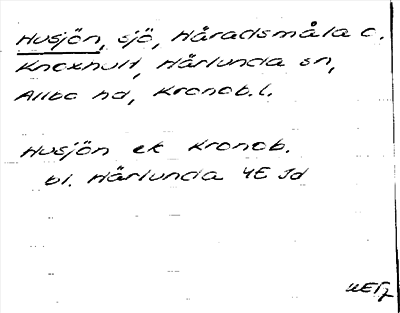 Husjön, sjö, Håradsmåla o.
Knoxhult, Härlunda sn,
Allbo hd, Kronob.l.
Husjön ek Kronob.
bl. Härlunda 4E Jd